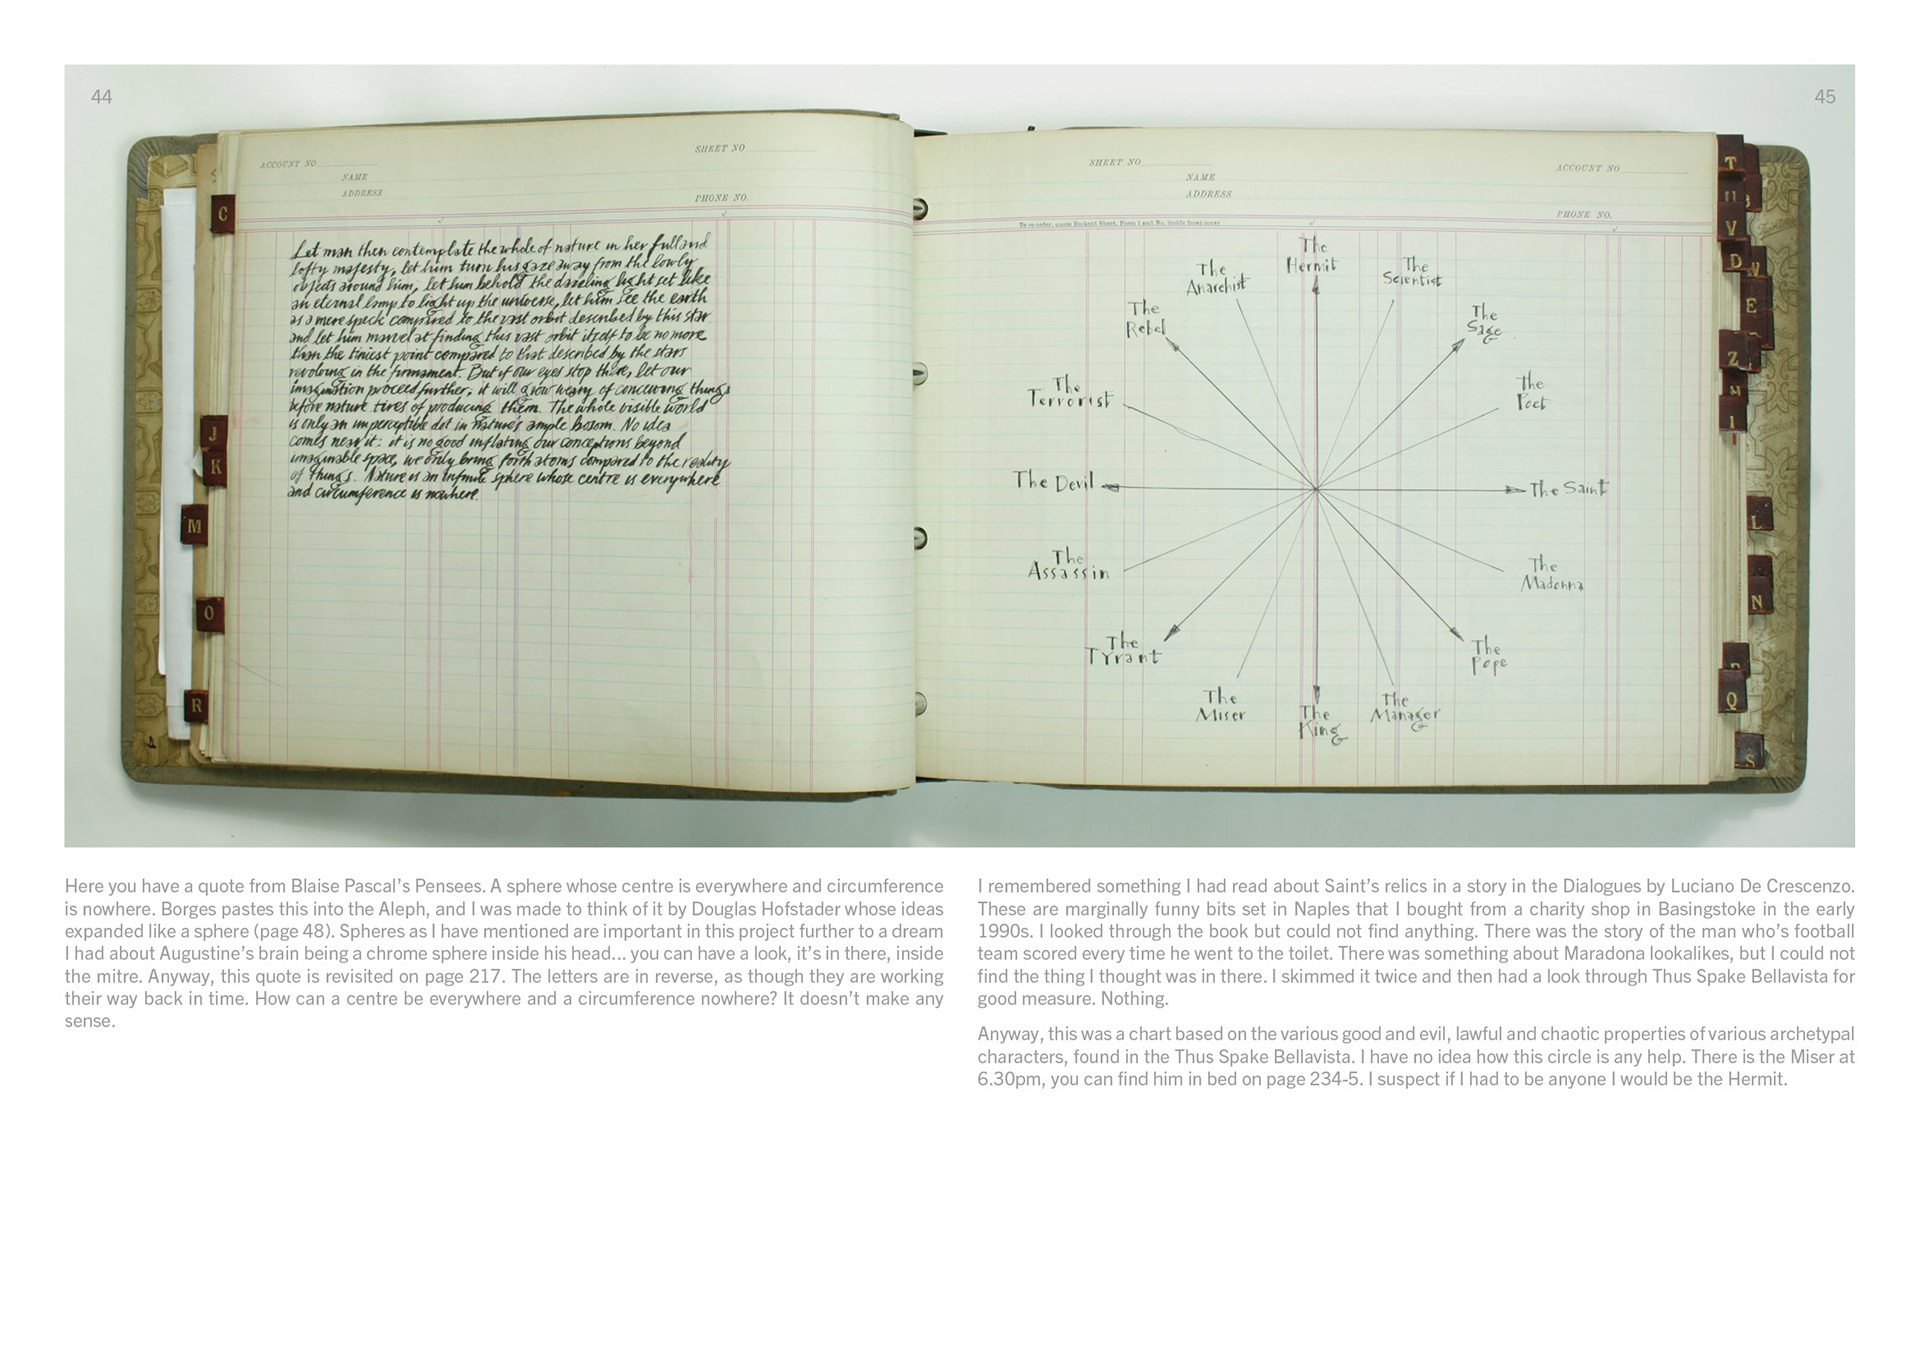 44
45
ACCOUNT NO
SHEET NO
NAME
ADDRESS
PHONE NO.
C
J
K
M
O
R
Let man then contemplate the whole of nature in her full and
lofty majesty, let him turn his gaze away from the lowly
objects around him, let him behold the dazzling light set like
an eternal lamp to light up the universe, let him see the earth
as a mere speck compared to the vast orbit described by this star
and let him marvel at finding this vast orbit itself to be no more
than the tiniest point compared to that described by the stars
revolving in the firmament. But if our eyes stop there, let our
imagination proceed further, it will grow weary of conceiving things
before nature tires of producing them. The whole visible world
is only an imperceptible dot in nature's ample bosom. No idea
comes near it: it is no good inflating our conceptions beyond
imaginable space, we only bring forth atoms compared to the reality
of things. Nature is an infinite sphere whose centre is everywhere
and circumference is nowhere.
SHEET NO
ACCOUNT NO
NAME
ADDRESS
PHONE NO.
To re-order, quote Sheet, Form 1 and No. inside front cover
The
Hermit
The
Scientist
The
Sage
The
Poet
The Saint
The
Madonna
The
Pope
The
Manager
The
King
The
Miser
The
Tyrant
The
Assassin
The Devil
The
Terrorist
The
Rebel
The
Anarchist
T
U
V
D
E
Z
I
L
N
Q
S
Here you have a quote from Blaise Pascal's Pensees. A sphere whose centre is everywhere and circumference
is nowhere. Borges pastes this into the Aleph, and I was made to think of it by Douglas Hofstader whose ideas
expanded like a sphere (page 48). Spheres as I have mentioned are important in this project further to a dream
I had about Augustine's brain being a chrome sphere inside his head... you can have a look, it's in there, inside
the mitre. Anyway, this quote is revisited on page 217. The letters are in reverse, as though they are working
their way back in time. How can a centre be everywhere and a circumference nowhere? It doesn't make any
sense.
I remembered something I had read about Saint's relics in a story in the Dialogues by Luciano De Crescenzo.
These are marginally funny bits set in Naples that I bought from a charity shop in Basingstoke in the early
1990s. I looked through the book but could not find anything. There was the story of the man who's football
team scored every time he went to the toilet. There was something about Maradona lookalikes, but I could not
find the thing I thought was in there. I skimmed it twice and then had a look through Thus Spake Bellavista for
good measure. Nothing.
Anyway, this was a chart based on the various good and evil, lawful and chaotic properties of various archetypal
characters, found in the Thus Spake Bellavista. I have no idea how this circle is any help. There is the Miser at
6.30pm, you can find him in bed on page 234-5. I suspect if I had to be anyone I would be the Hermit.